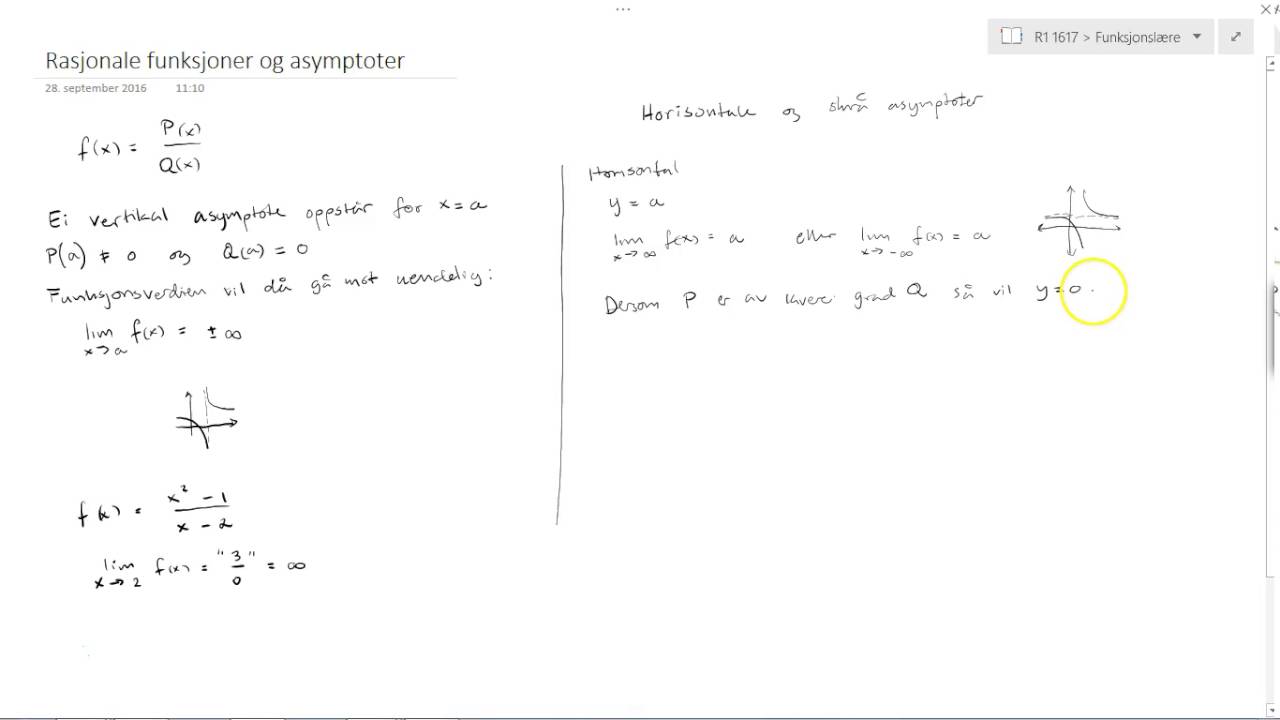 R1 1617 > Funksjonslære
Rasjonale funksjoner og asymptoter
28. september 2016 11:10
f(x) = P(x)/Q(x)
Ei vertikal asymptote oppstår for x = a
P(a) ≠ 0 og Q(a) = 0
Funksjonsverdien vil då gå mot uendelig:
lim x→a f(x) = ± ∞
f(x) = x² - 1 / x - 2
lim x→2 f(x) = "3/0" = ∞
Horisontale og skrå asymptoter
Horisontal
y = a
lim x→∞ f(x) = a eller lim x→-∞ f(x) = a
Dersom P er av lavere grad Q så vil y = 0.